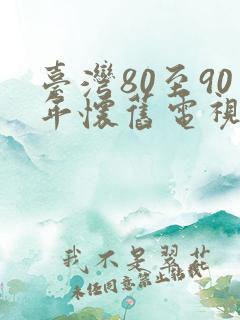 臺灣80至90
年懷舊電視
我不是翠花
未經同意禁止轉載